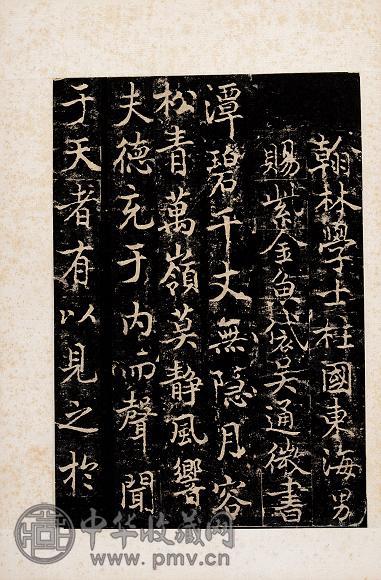 翰林學士柱國東海男
賜紫金魚袋吴通微書
潭碧千丈無隐月容
松青萬嶺莫静風響
夫德充于内而聲聞
于天者有以見之於
中华收藏网
www.pmv.cn